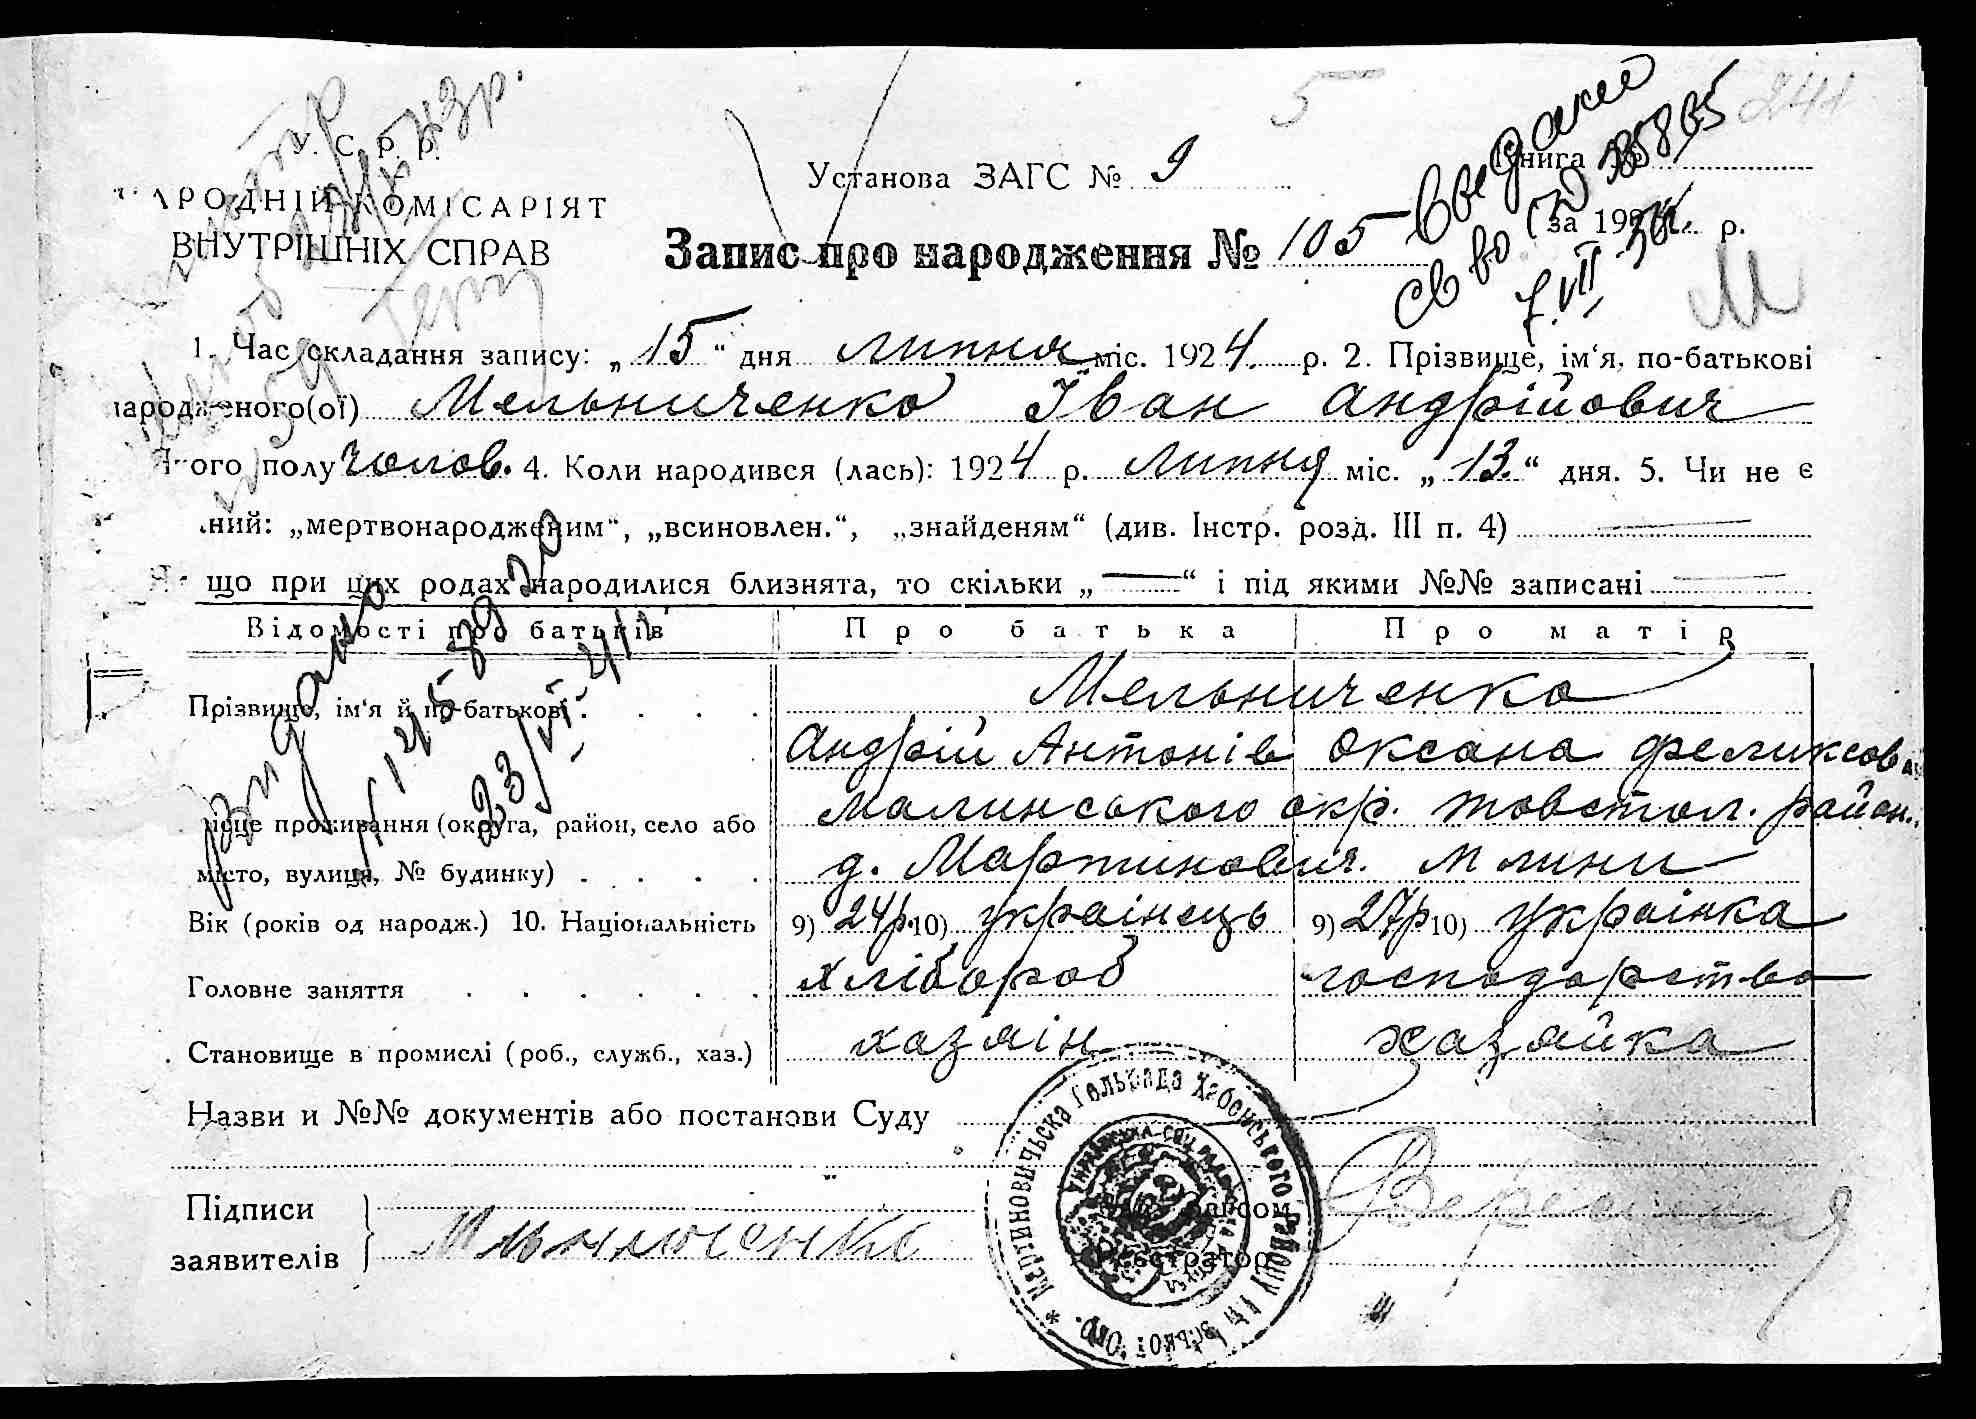 5
241
У. С. Р. Р.
НАРОДНІЙ КОМІСАРІЯТ
ВНУТРІШНІХ СПРАВ
Установа ЗАГС № 9
Книга №
за 1924 р.
Запис про народження № 105
св во
7.VII
М
1. Час складання запису: „15“ дня липня міс. 1924 р. 2. Прізвище, ім‘я, по-батькові
народженого(ої) Мельниченко Іван Андрійович
якого полу чолов. 4. Коли народився (лась): 1924 р. липня міс. „13.“ дня. 5. Чи не є
ний: „мертвонародженим“, „всиновлен.“, „знайденям“ (див. Інстр. розд. III п. 4)
що при цих родах народилися близнята, то скільки „—“ і під якими №№ записані
Відомості про батьків Про батька Про матір
видано
23/VI-41
Прізвище, ім‘я й по-батькові . . . . Мельниченко
Андрій Антонів Оксана Феликсова
місце проживання (округа, район, село або Малинського окр. Товстол. район.
місто, вулиця, № будинку) . . . . д. Мартинович. Млини
Вік (років од народж.) 10. Національність 9) 24р. 10) українець 9) 27р 10) українка
Головне заняття . . . . . . хлібороб господарство
Становище в промислі (роб., служб., хаз.) хазяін хазяйка
Назви и №№ документів або постанови Суду
Підписи
заявителів
Мельниченко
Зав. Загсом
Реєстратор